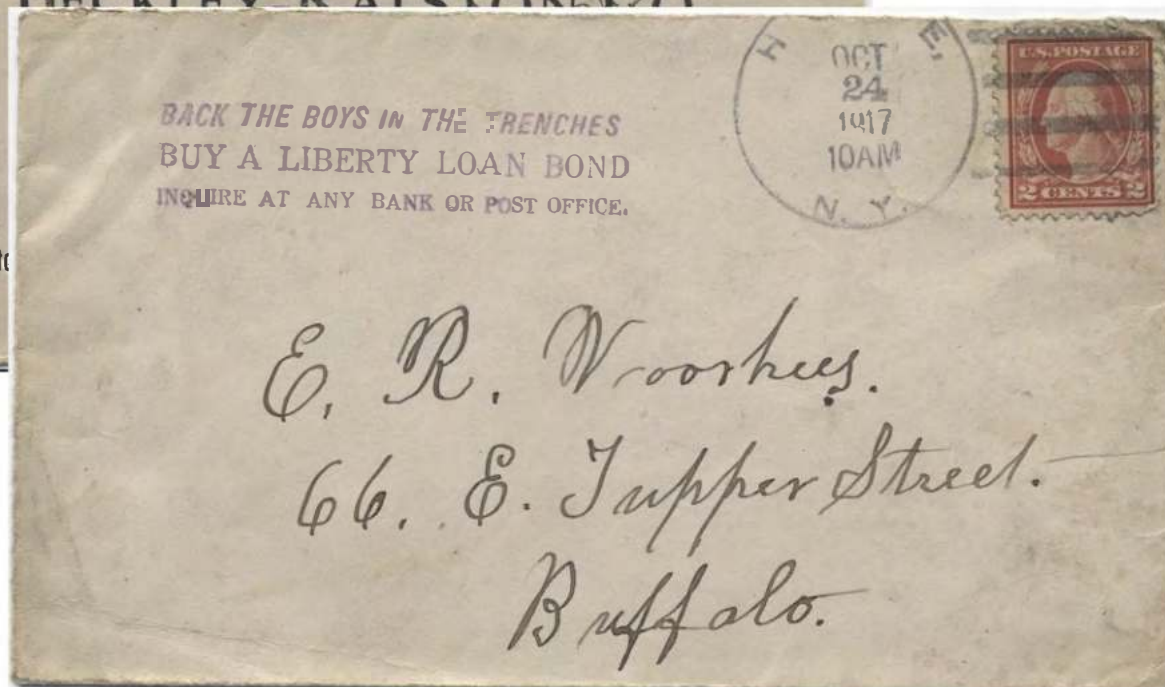 BACK THE BOYS IN THE TRENCHES
BUY A LIBERTY LOAN BOND
INQUIRE AT ANY BANK OR POST OFFICE.
H E,
OCT
24
1917
10AM
N. Y.
U.S. POSTAGE
2 CENTS 2
E. R. Voorhees.
66. E. Tupper Street.
Buffalo.